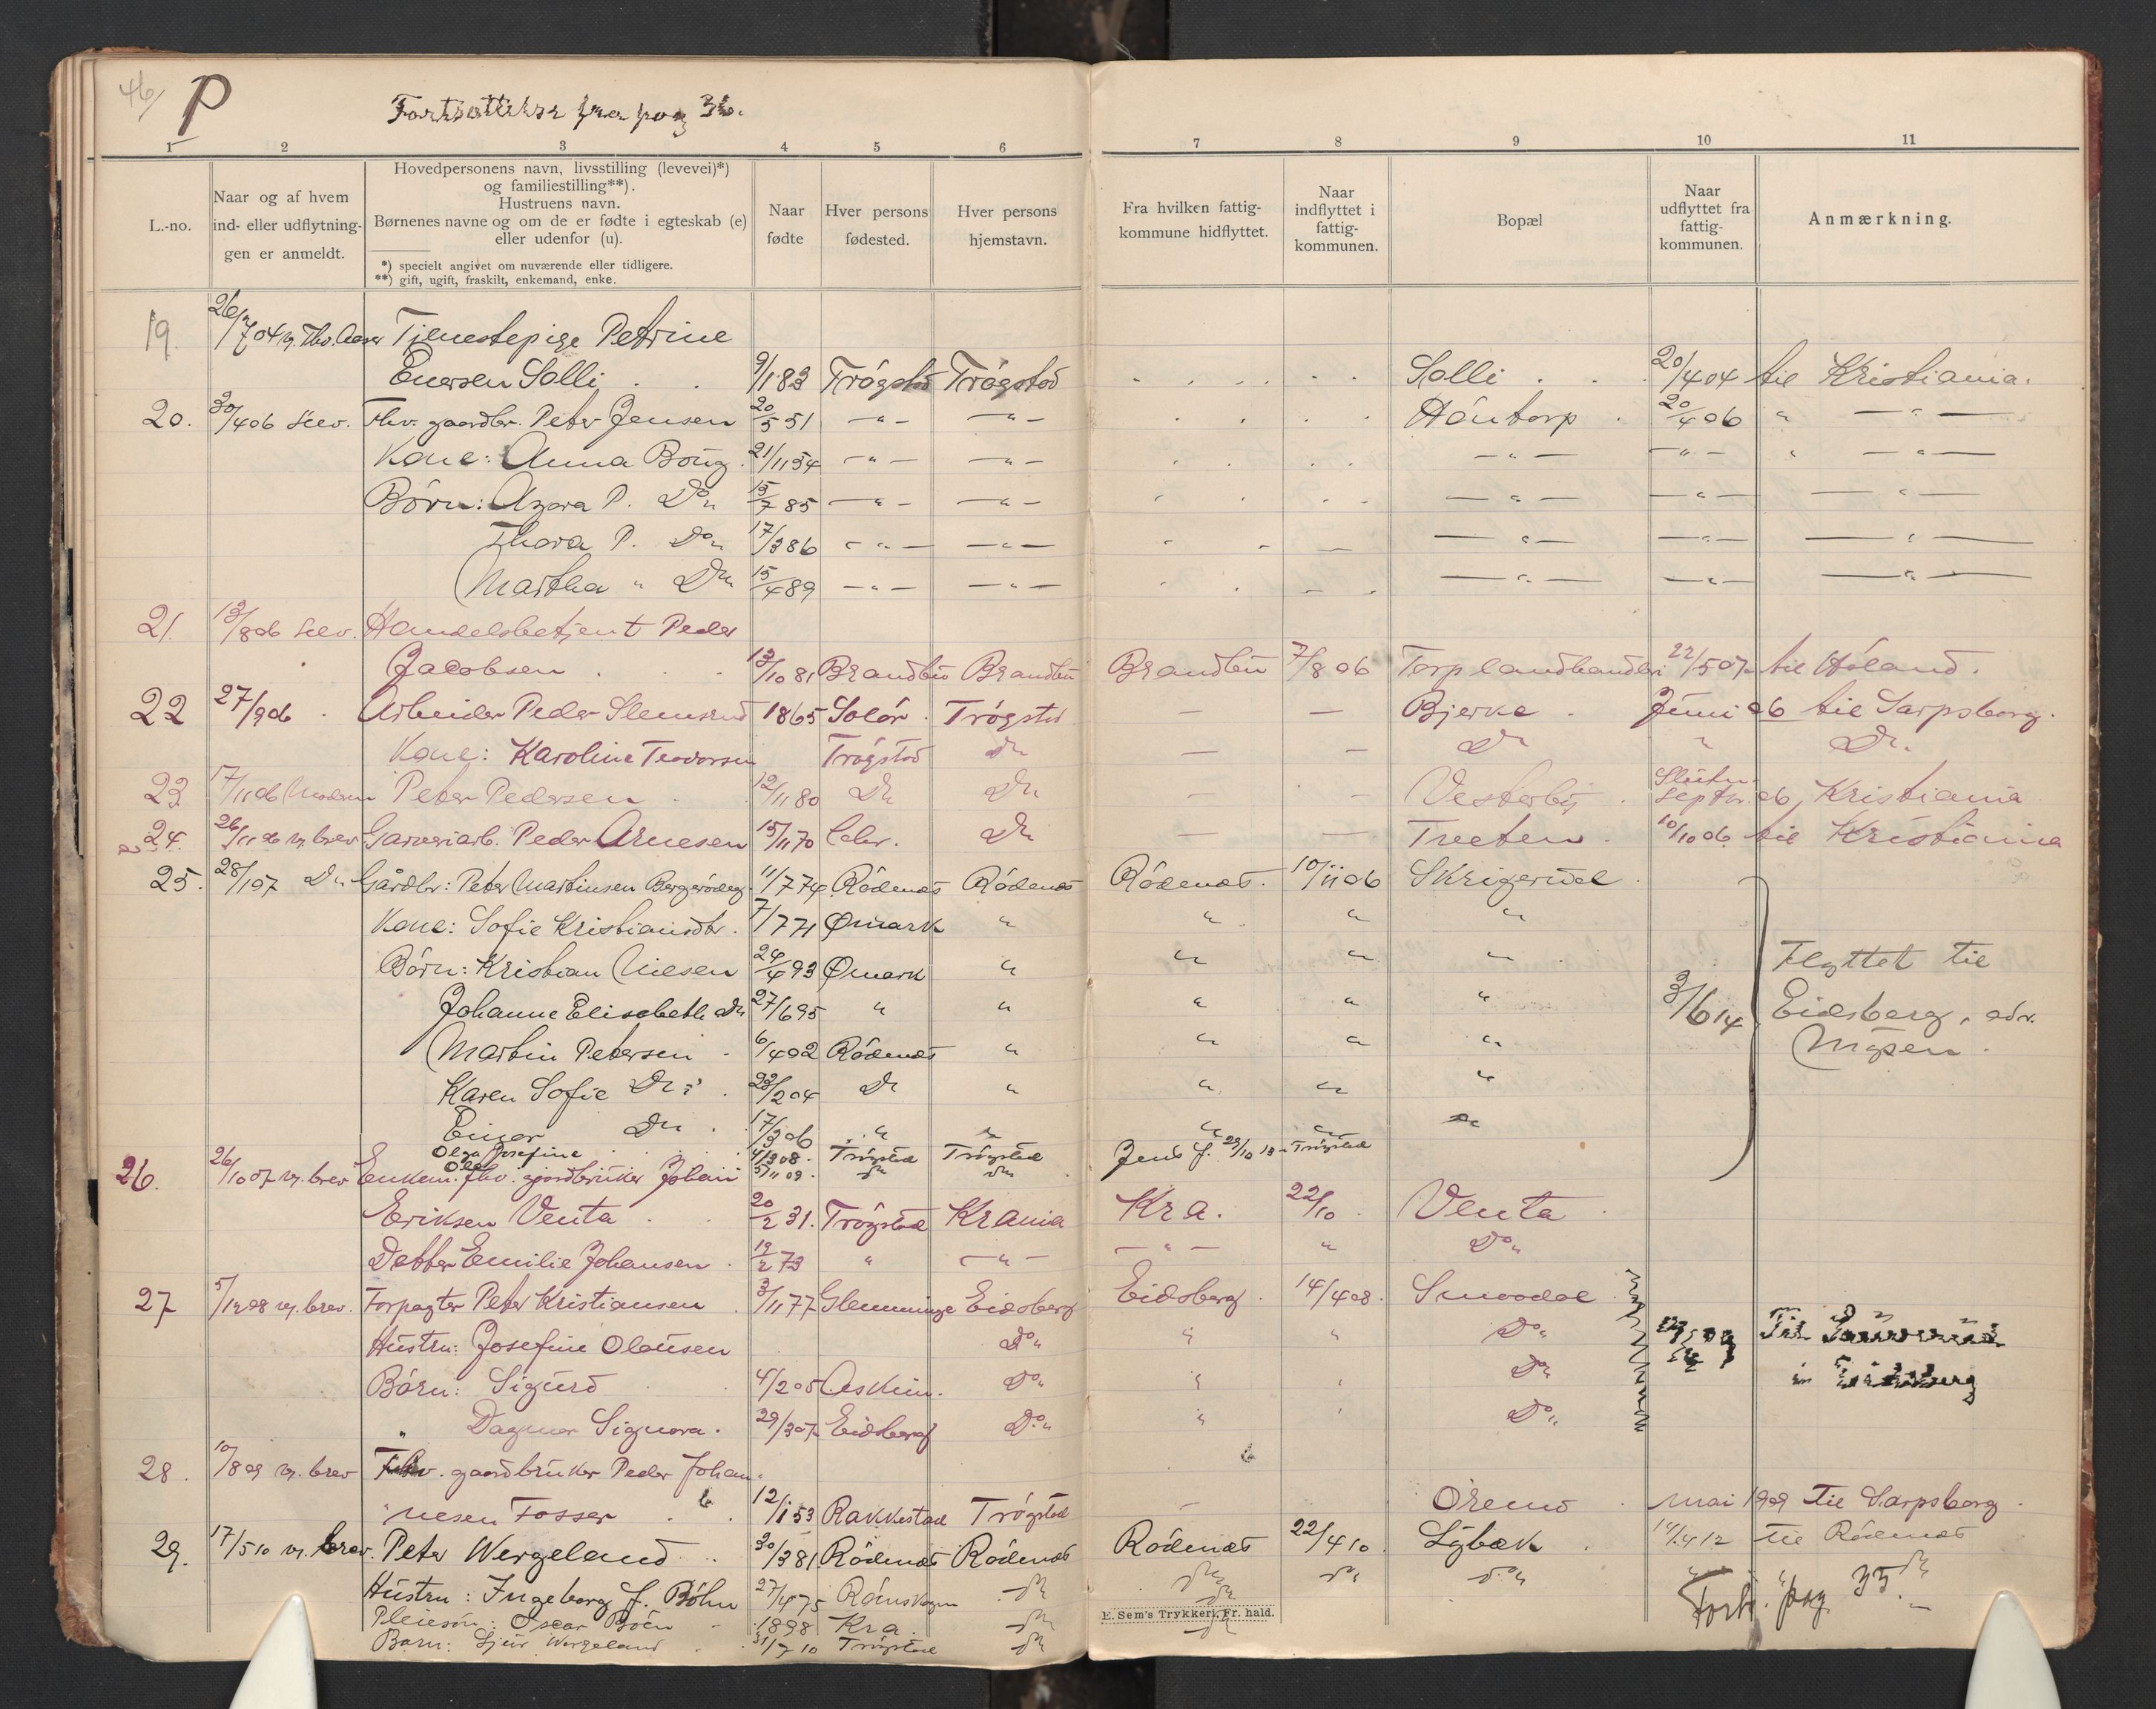 46/ P Fortsættelse fra pag 36.
1 2 3 4 5 6 7 8 9 10 11
L.-no.
Naar og af hvem
ind- eller udflytnin-
gen er anmeldt.
Hovedpersonens navn, livsstilling (levevei)*)
og familiestilling**).
Hustruens navn.
Børnenes navne og om de er fødte i egteskab (e)
eller udenfor (u).
*) specielt angivet om nuværende eller tidligere.
**) gift, ugift, fraskilt, enkemand, enke.
Naar
fødte
Hver persons
fødested.
Hver persons
hjemstavn.
Fra hvilken fattig-
kommune hidflyttet.
Naar
indflyttet i
fattig-
kommunen.
Bopæl
Naar
udflyttet fra
fattig-
kommunen.
Anmærkning.
19. 26/7 04 v. Tho. Aaser Tjenestepige Petrine
Enersen Solli 9/1 83 Trøgstad Trøgstad Solli 20/4 04 til Kristiania.
20. 30/4 06 selv. Fhv. gaardbr. Peter Jensen 20/5 51 —"— —"— Höntorp 20/4 06 " —"—
Kone: Anna Boug 21/11 54 —"— —"— —"— —"— " —"—
Børn: Agora P. Do 15/7 85 —"— —"— —"— —"— —"—
Thora P. Do 17/3 86 —"— —"— —"— —"— —"—
Martha " Do 15/4 89 —"— —"— —"— —"— —"—
21. 13/8 06 selv. Handelsbetjent Peder
Jacobsen 13/10 81 Brandbu Brandbu Brandbu 7/8 06 Torp landhandleri 22/5 07 til Höland.
22 27/9 06 Arbeider Peder Slemsrud 1865 Solör Trøgstad — — Bjerke Juni 06 til Sarpsborg.
Kone: Karoline Teodorsen Trögstad Do — — Do " Do
23 17/11 06 Moderen Peter Pedersen 12/11 80 Do Do — — Vesterby Slutn. Septbr. 06, Kristiania
24. 26/11 06 v. brev Garveriarb. Peder Arnesen 15/11 70 Do — — Treeten 10/10 06 til Kristiania
25. 28/1 07 Do Gårdbr: Peter Martinsen 11/7 74 Rödenæs Rödenæs Rödenæs. 10/11 06 Skrigerud
Kone: Sofie Kristiansdtr. 7/7 71 Ømark " " " "
Börn: Kristian Nilsen 24/4 93 Ømark " " " " Flyttet til
Johanne Elisabeth do 27/6 95 " " " " " 3/6 14 Eidsberg, adr.
Martin Petersen 6/4 02 Rödenæs " " " " Mysen.
Karen Sofie Do 23/2 04 Do " " " "
Einar Do 17/3 06 " " " " "
Olga Josefine 4/3 08. Trögstad Trögstad Trögstad
26. 26/10 07 v. brev Enkem. fhv. gaardbruker Johan
Eriksen Venta 20/2 31. Trögstad Krania Kra. 22/10 Venta
Datter Emilie Johansen 19/2 73 " —"— —"— " Do
27 5/12 08 v. brev. Forpagter Peter Kristiansen 3/11 77 Glemminge Eidsberg Eidsberg 14/4 08 Smodal
Hustru: Josefine Olausen Do " " Do Til
Börn: Sigurd 4/2 05 Askim. Do " " Do i Eidsberg
" Dagmar Signora. 29/3 07 Eidsberg Do " " Do
28. 10/8 09 v. brev Fhv. gaardbruker Peder Johan-
nesen Fosser 12/1 53 Rakkestad Trögstad — Öremo mai 1909 Til Sarpsborg.
29. 17/5 10 v. brev. Peter Wergeland 30/3 81 Rödenæs Rödenæs Rödenæs 22/4 10 Lybæk 14/4 12 til Rödenæs
Hustru: Ingeborg f. Böhn 27/4 75 Römskogen do do do do " " do
Pleiesön: Oscar Böen 1898 Kra. do do Forts. pag 35.
Barn: Sjur Wergeland 31/7 10 Trögstad do do
E. Sem's Trykkeri, Fr. hald.